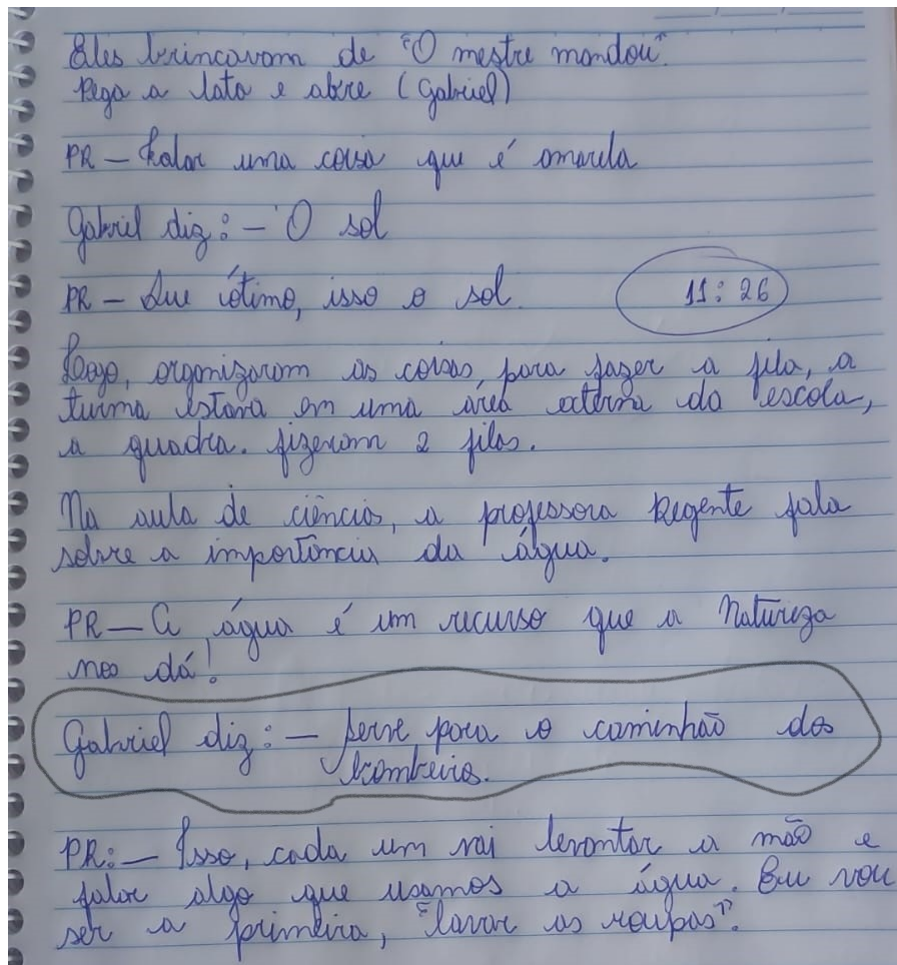 Eles brincavam de "O mestre mandou".
Pega a lata e abre (Gabriel)
PR - Falar uma coisa que é amarela
Gabriel diz: - O sol
PR - Que ótimo, isso o sol.
11:26
Logo, organizaram as coisas, para fazer a fila, a
turma estava em uma área externa da escola,
a quadra. fizeram 2 filas.
Na aula de ciências, a professora Regente fala
sobre a importância da água.
PR - A água é um recurso que a Natureza
nos dá!
Gabriel diz: - Serve para o caminhão dos
bombeiros.
PR: - Isso, cada um vai levantar a mão e
falar algo que usamos a água. Eu vou
ser a primeira, "lavar as roupas".